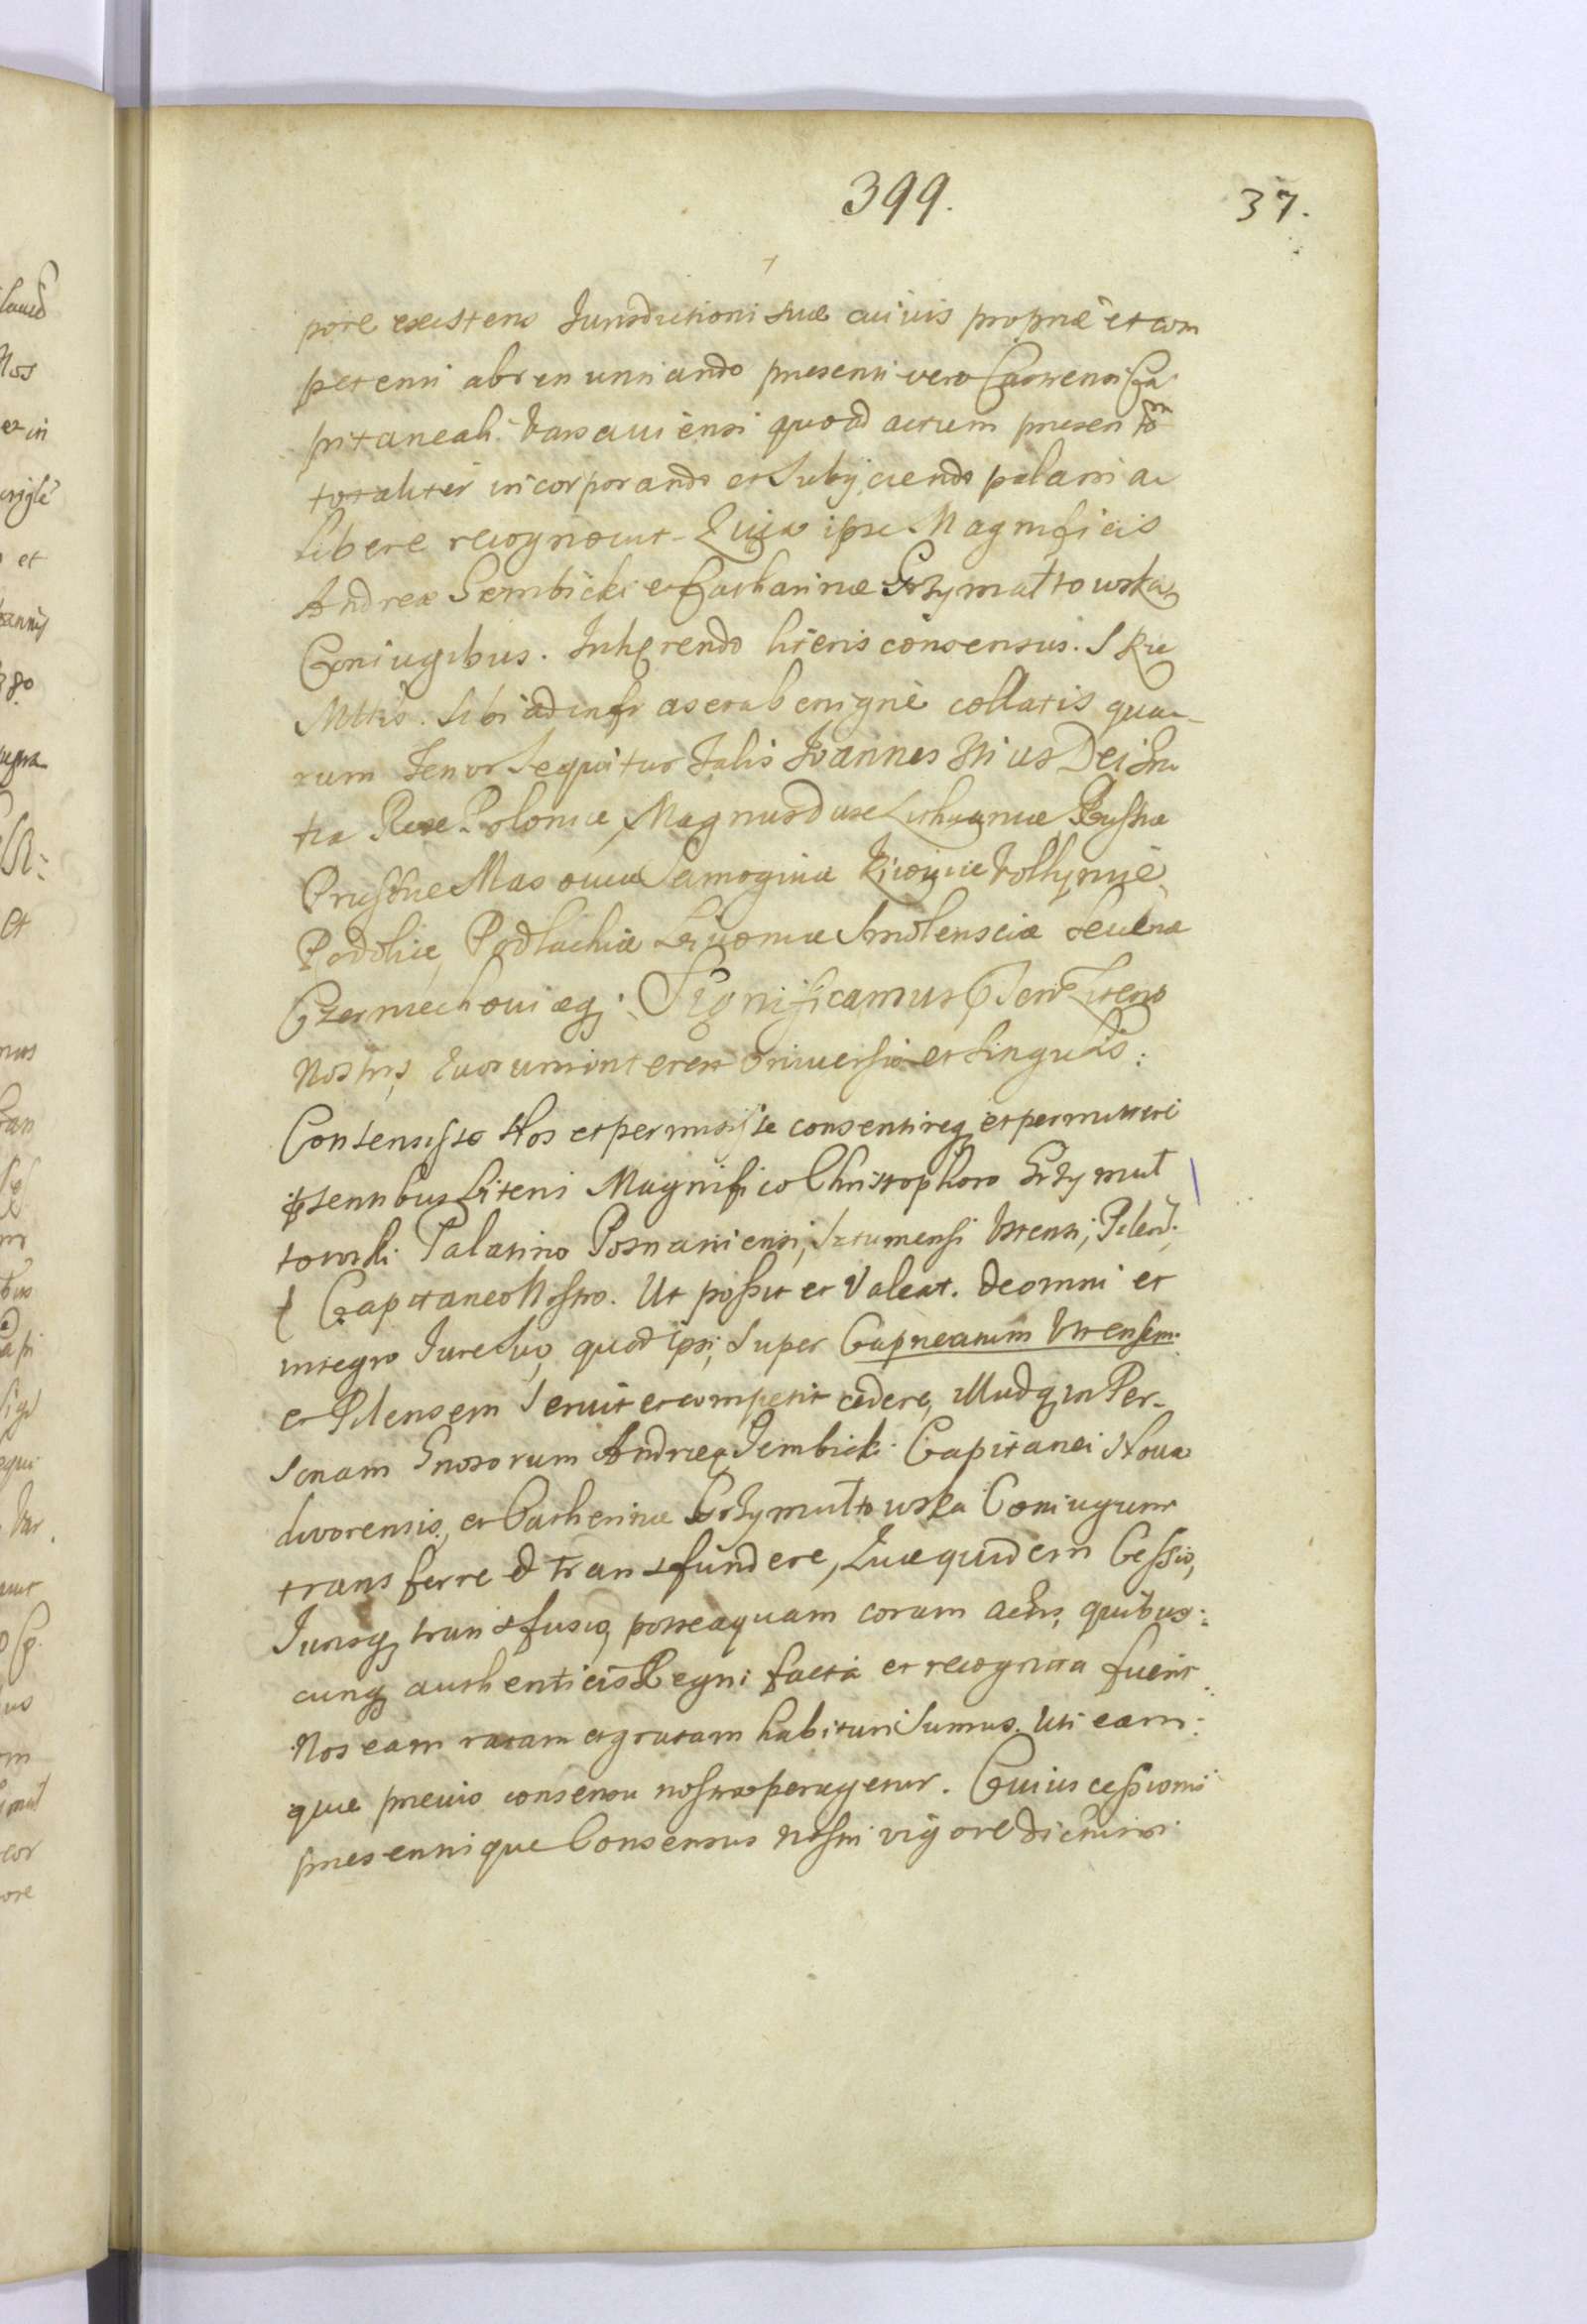 399.
37.
pore existens Jurisdictioni suæ cuivis propriæ et com
petenti abrenunciando presenti vero Castrensi Ca
pitaneali Varsaviensi quoad actum presentem
totaliter incorporando et Subijciendo palam ac
libere recognovit. Quia ipse Magnificis
Andreæ Gembicki et Catharinæ Grzymałtowska
Coniugibus. Inhærendo literis consensus. S R
Mttis. sibi ad infrascripta benigne collatis qua-
rum Tenor Sequitur talis Joannes 3tius Dei Gra
tia Rex Poloniæ, Magnus dux Lithuaniæ Russiæ
Prussiæ Masoviæ Samogitiæ Kijoviæ Vollhyniæ
Podoliæ, Podlachiæ Livoniæ Smolensciæ Severiæ
Czerniechoviæq; Significamus pntibus Literis
Nostris, Quorum interest Universis et Singulis:
Consensisse Nos et permisisse consentireq; et permittere
pstentibus Literis Magnifico Christophoro Grzymuł
towski Palatino Posnaniensi, Sztumensi Ustensi, Pilen:
Capitaneo Nostro. Ut possit et Valeat. de omni et
integro Jure Suo, quod ipsi, Super Capneatum Ustensem
et Pilensem Servit et competit cedere, illudq; in Per-
sonam Gnosorum Andreæ Gembicki Capitanei Nova
dworensis, et Catherinæ Grzymułtowska Coniugum
transferre & transfundere, Quæ quidem Cessio,
Jurisq; transfusio, postea quam coram actis, quibus:
cunq; authenticis Regni facta et recognita fuerit
Nos eam ratam et gratam habituri Sumus. Uti eam:
que previo consensu nostro peragetur. Cuius cessionis
presentisque Consensus Nostri vigore dictus